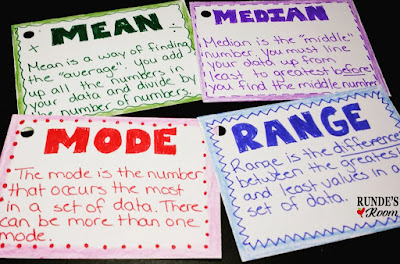 MEAN
+ ÷
Mean is a way of finding
the "average". you add
up all the numbers in
your data and divide by
the number of numbers.
MEDIAN
Median is the "middle"
number. You must line
your data up from
least to greatest before
you find the middle number
MODE
The mode is the number
that occurs the most
in a set of data. There
can be more than one
mode.
RANGE
Range is the difference
between the greatest
and least values in a
set of data.
RUNDE'S
Room